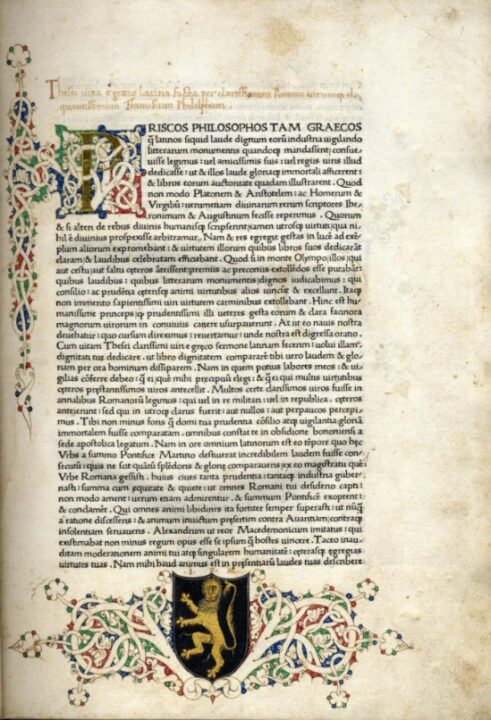 Thesei vita e graeco latina facta per clarissimum Poetam virumque elo
quentissimum Franciscum Philelphum.
PRISCOS PHILOSOPHOS TAM GRAECOS
q̃ latinos siquid laude dignum eorũ industria uigilando
litterarum monumentis quandoq; mandassent; consue
uisse legimus: uel amicissimis suis: uel regiis uiris illud
dedicasse: ut & illos laude gloriaq; immortali afficerent:
& libros eorum auctoritate quadam illustrarent. Quod
non modo Platonem & Aristotelem: ac Homerum &
Virgiliũ: uerumetiam diuinarum rerum scriptores Hie
ronimum & Augustinum fecisse reperimus. Quorum
& si alter de rebus diuinis humanisq; scripserint; utrosq; uirtuti; qua ni
hil e diuinius prospexisse arbitramur. Nam & res egregie gestas in lucẽ ad exem
plum aliorum expromebant: & uirtutem illorum quibus libros suos dedicarãt
claram: & laudibus celebratam efficiebant. Quod si in monte Olympo: illos; qui
aut cestu; aut saltu ceteros ãteissent; premiis ac preconiis extollẽdos esse putabãt
quibus laudibus: quibus litterarum monumentis; dignos iudicabimus: qui
consilio: ac prudẽtia ceterisq; animi uirtutibus alios uincũt & excellunt. Itaq;
non immerito sapientissimi uiri uirtutem carminibus extollebant. Hinc est hu
manissime princeps; q prudentissimi illi ueteres gesta eorum & clara facinora
magnorum uirorum in conuiuiis canere usurpauerunt. At ut eo nauis nostra
deuehatur: quo cursum direximus: reuertamur: unde nostra est digressa oratio.
Cum uitam Thesei clarissimi uiri e greco sermone latinam fecerim: uolui illam
dignitati tuę dedicare. ut libro dignitatem compararẽ tibi uero laudem & glo
riam per ora hominum dissiparem. Nam in quem potius labores meos: & ui
gilias cõferre debeo: q̃ ei; quẽ mihi precipuũ elegi: & q̃ ei qui multis uirtutibus
ceteros pręstantissimos uiros antecellit. Multos certe clarissimos uiros fuisse in
annalibus Romanorũ legimus: qui uel in re militari: uel in republica. cęteros
anteierunt: sed qui in utroq; darus fuerit: aut nullos: aut perpaucos percipi
mus. Tibi non minus foris q̃ domi tua prudentia cõsilio atq; uigilantia gloriã
immortalem fuisse comparatam. omnibus constat te in obsidione bononiẽsi a
sede apostolica legatum. Nam in ore omnium latinorum est eo tẽpore quo hęc
Vrbs a summo Pontifice Martino destituerat incredibilem laudem fuisse con
secutũ: quis ne scit quãti splẽdoris & glorię comparauens; ex eo magistratu quẽ
Vrbe Romana gessisti. huius ciues tanta prudentia: tantaq; industria guber
nasti: summa cum equitate & quiete: ut omnes Romani tui desiderio capti:
non modo ament: uerum etiam admirentur. & summum Pontificẽ exoptent:
& conclamẽt. Qui omnes animi libidines ita fortiter semper superasti: ut nusq̃
a ratione discessens: & animum inuictum presertim contra Auaritiam; contraq;
insolentiam seruauens. Alexandrum ut reor Macedemonicum imitatus: qui
existimabat non minus regium opus esse se ipsum q̃ hostes uincere. Taceo inau
ditam moderationem animi tui atq; singularem humanitatẽ: cęterasq; egregias
uirtutes tuas. Nam mihi haud animus est in presentiarũ laudes tuas describere